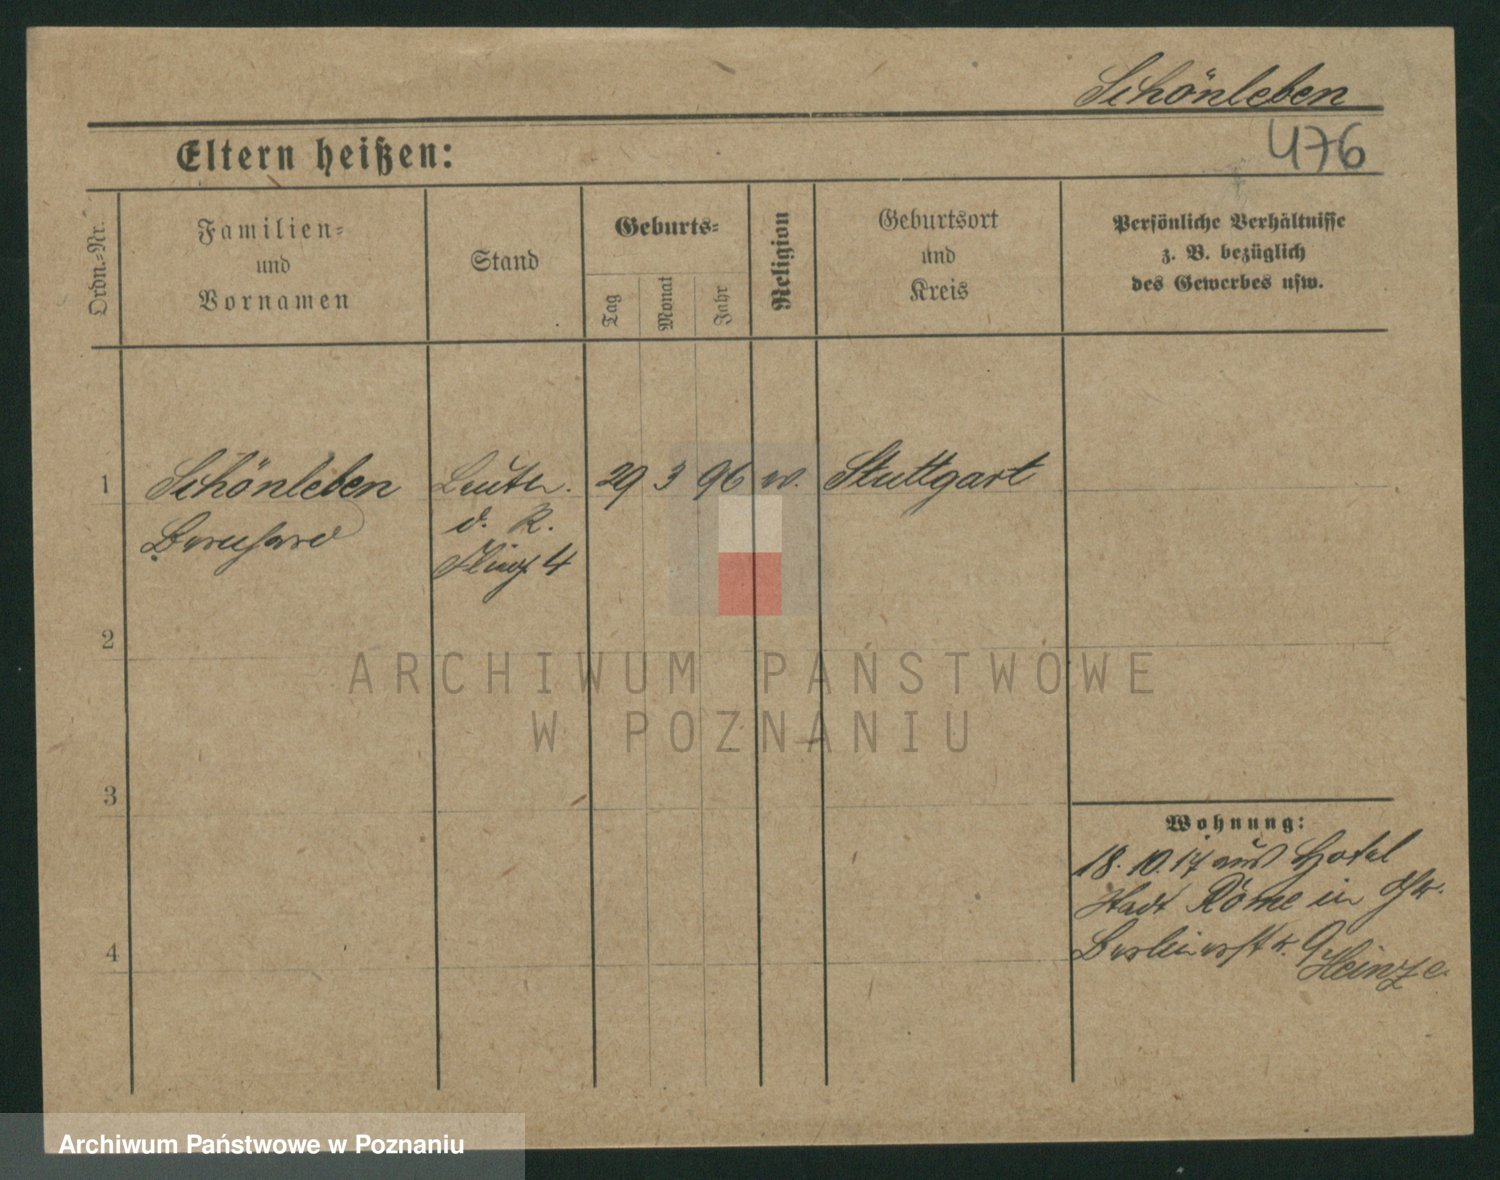 Schönleben
476
Eltern heißen:
Ordn.-Nr.
Familien-
und
Vornamen
Stand
Geburts-
Tag
Monat
Jahr
Religion
Geburtsort
und
Kreis
Persönliche Verhältnisse
z. B. bezüglich
des Gewerbes usw.
1
Schönleben
Bernhard
d. R.
29 3 96
Stuttgart
2
3
4
ARCHIWUM PAŃSTWOWE
W POZNANIU
Wohnung:
18. 10. 17 aus Hotel
Stadt Rome in
Berlinerstr. 9
Heinze
Archiwum Państwowe w Poznaniu